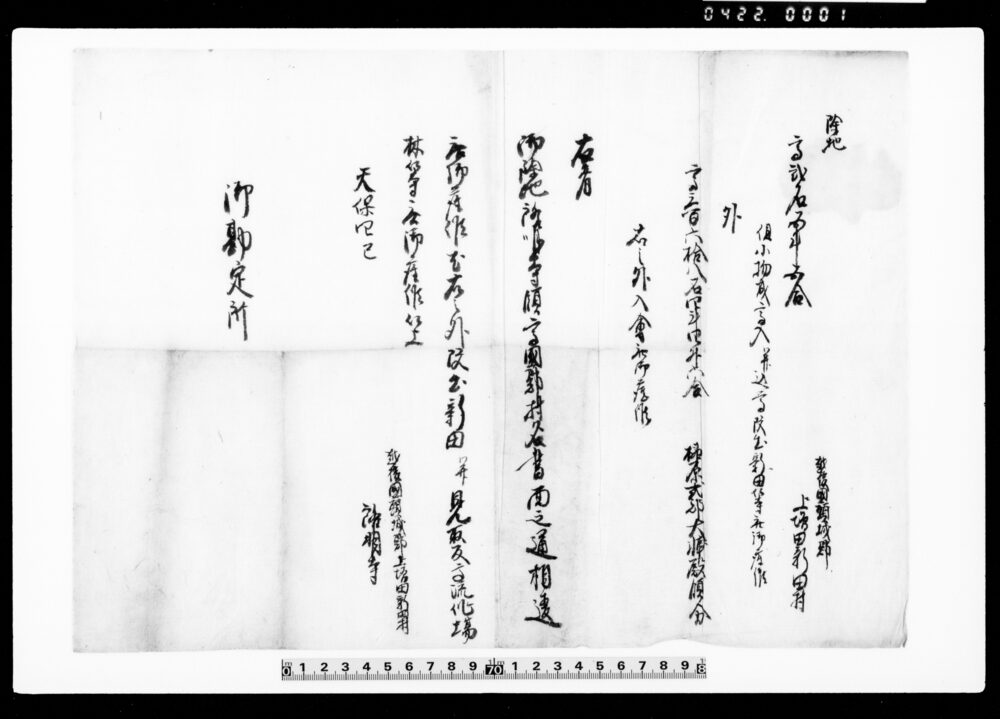 0422. 0001
除地
高弐石四斗五合
越後国頸城郡
上増田新田村
但小物成高入并込高改出新田等無御座候
外
高三百六拾八石四斗四升六合
榊原式部大輔殿領分
右之外入会無御座候
右者
御除地 寺領高国郡村名書面之通相違
無御座候尤右之外改出新田并見取反高流作場
林等無御座候以上
天保四巳
越後国頸城郡上増田新田村
明寺
御勘定所
0 1 2 3 4 5 6 7 8 9 10 1 2 3 4 5 6 7 8 9